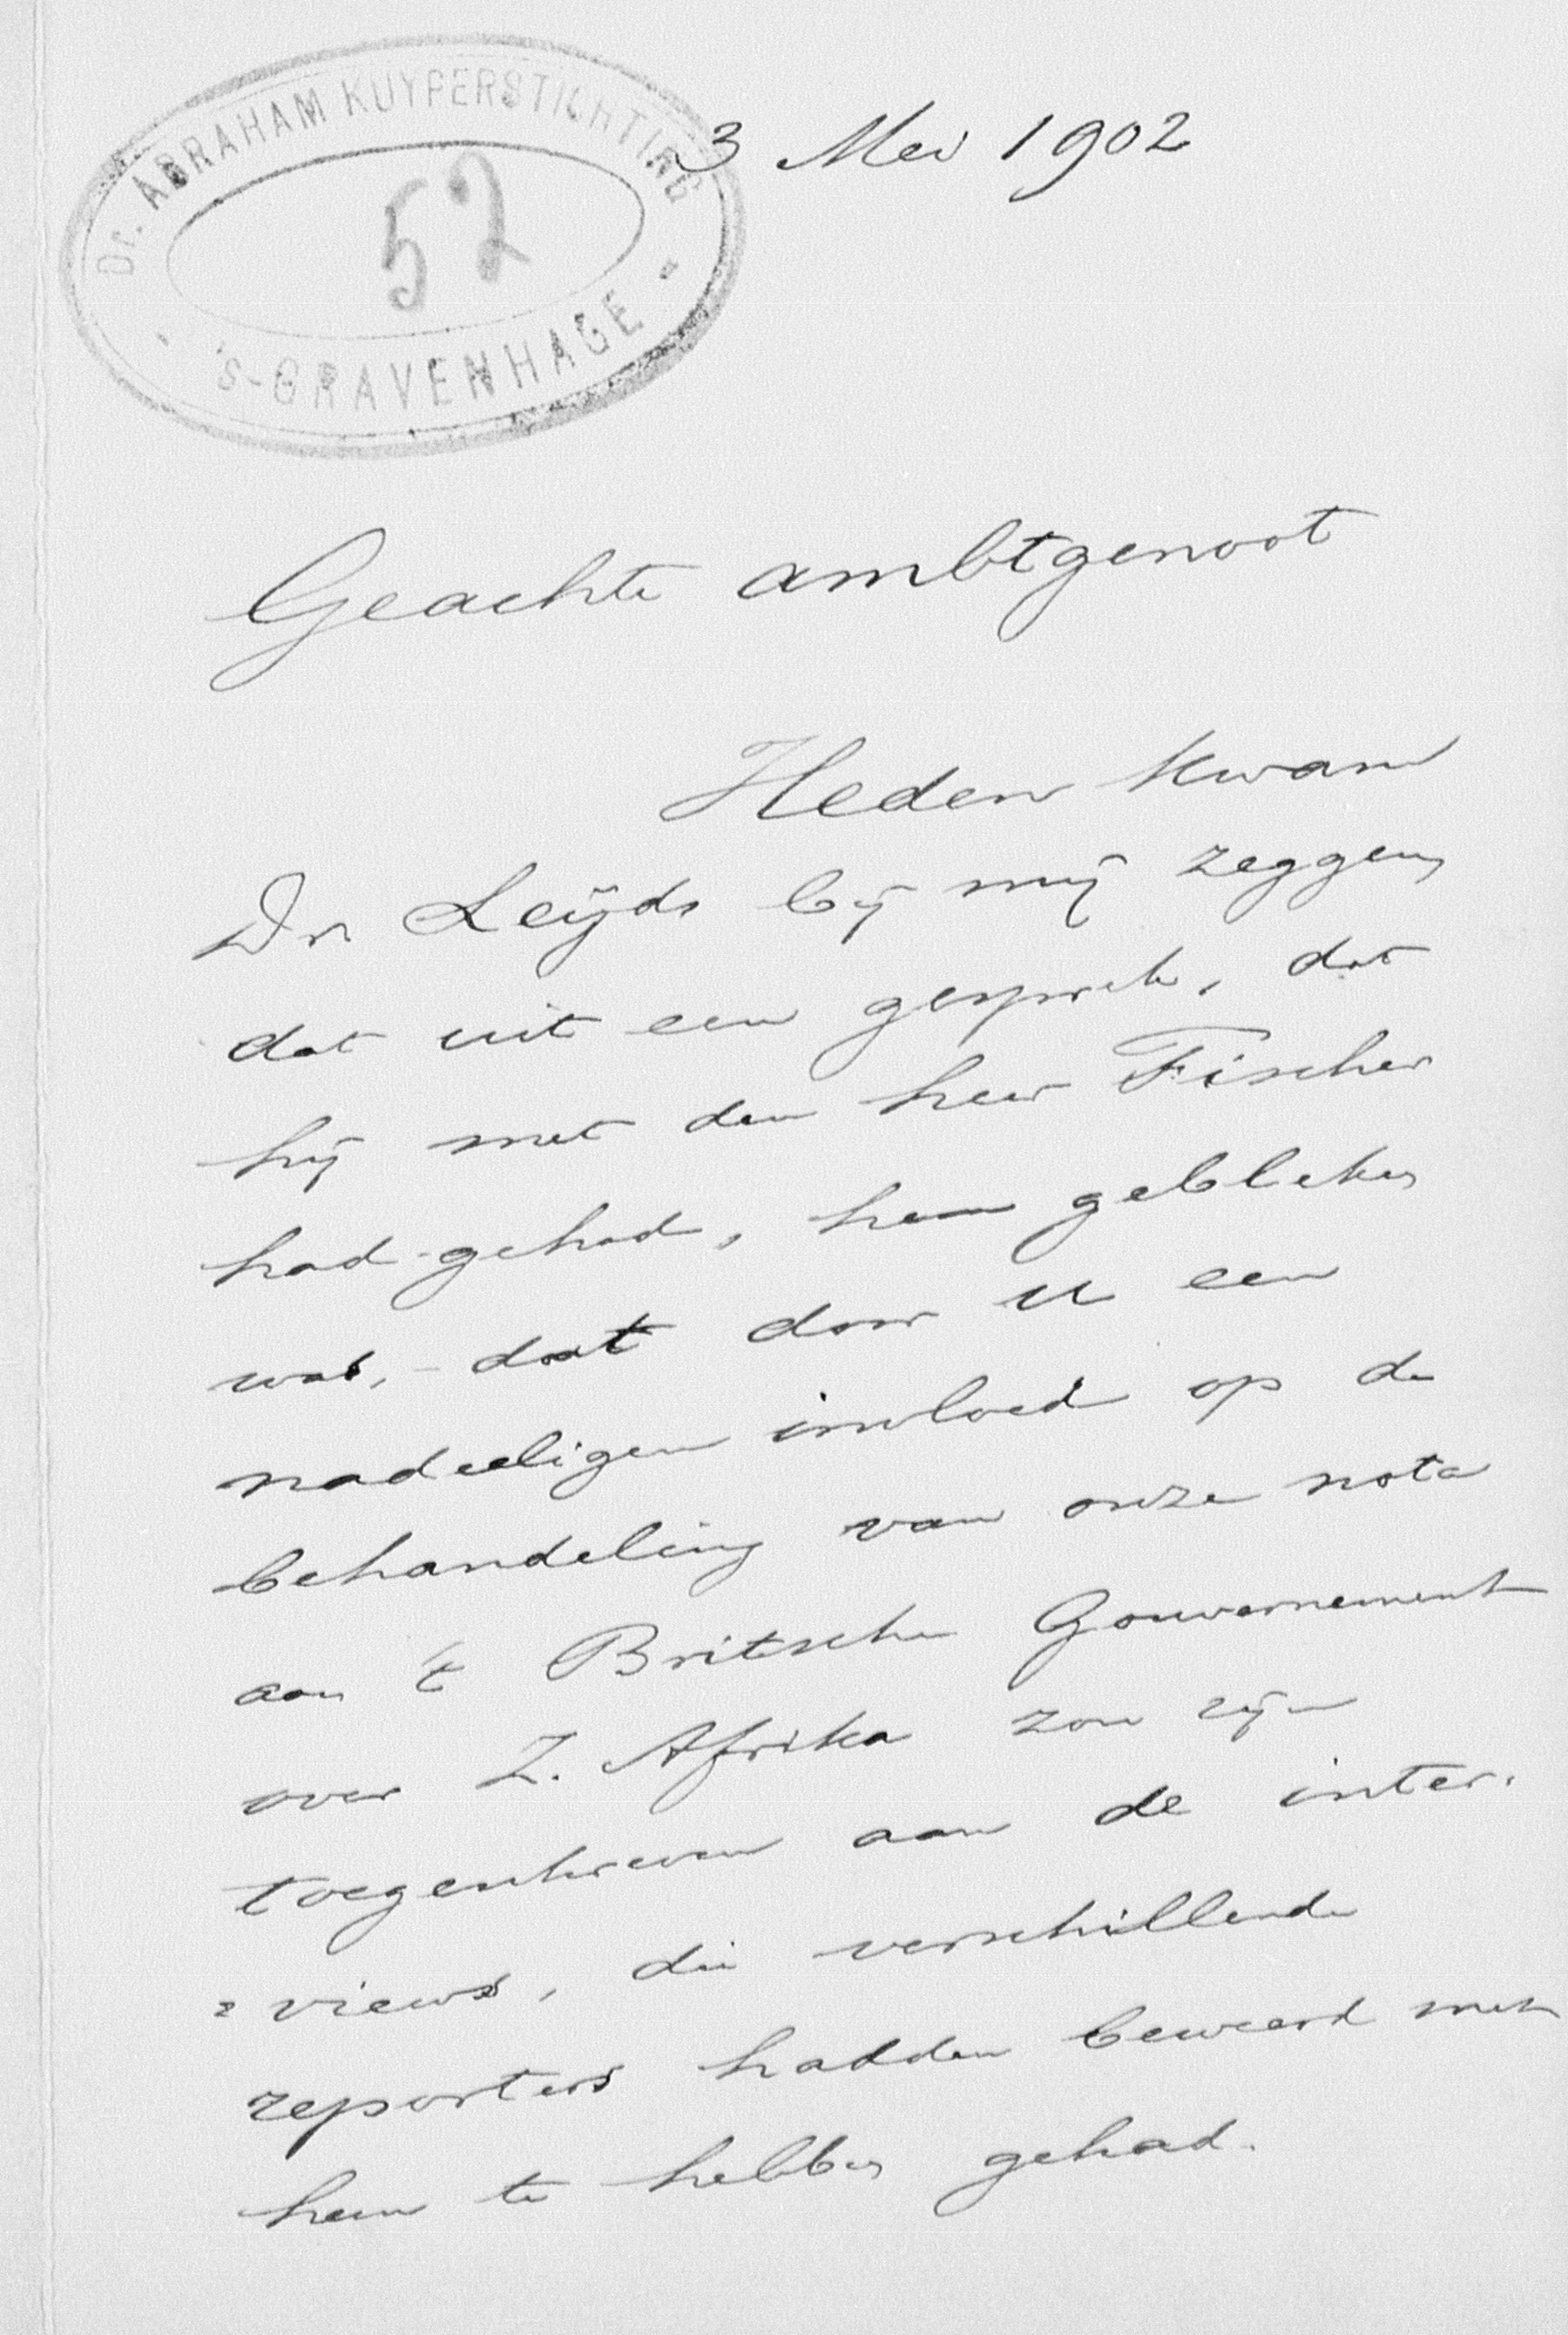 Dr. ABRAHAM KUYPERSTICHTING
52
's-GRAVENHAGE
3 Mei 1902
Geachte ambtgenoot
Heden kwam
Dr Leÿds bij mij zeggen,
dat uit een gesprek, dat
hij met den heer Fischer
had gehad, hem gebleken
was, dat door U een
nadeeligen invloed op de
behandeling van onze nota
aan 't Britsche Gouvernement
over Z. Afrika zou zijn
toegeschreven aan de inter-
views, die verschillende
reporters hadden beweerd met
hem te hebben gehad.